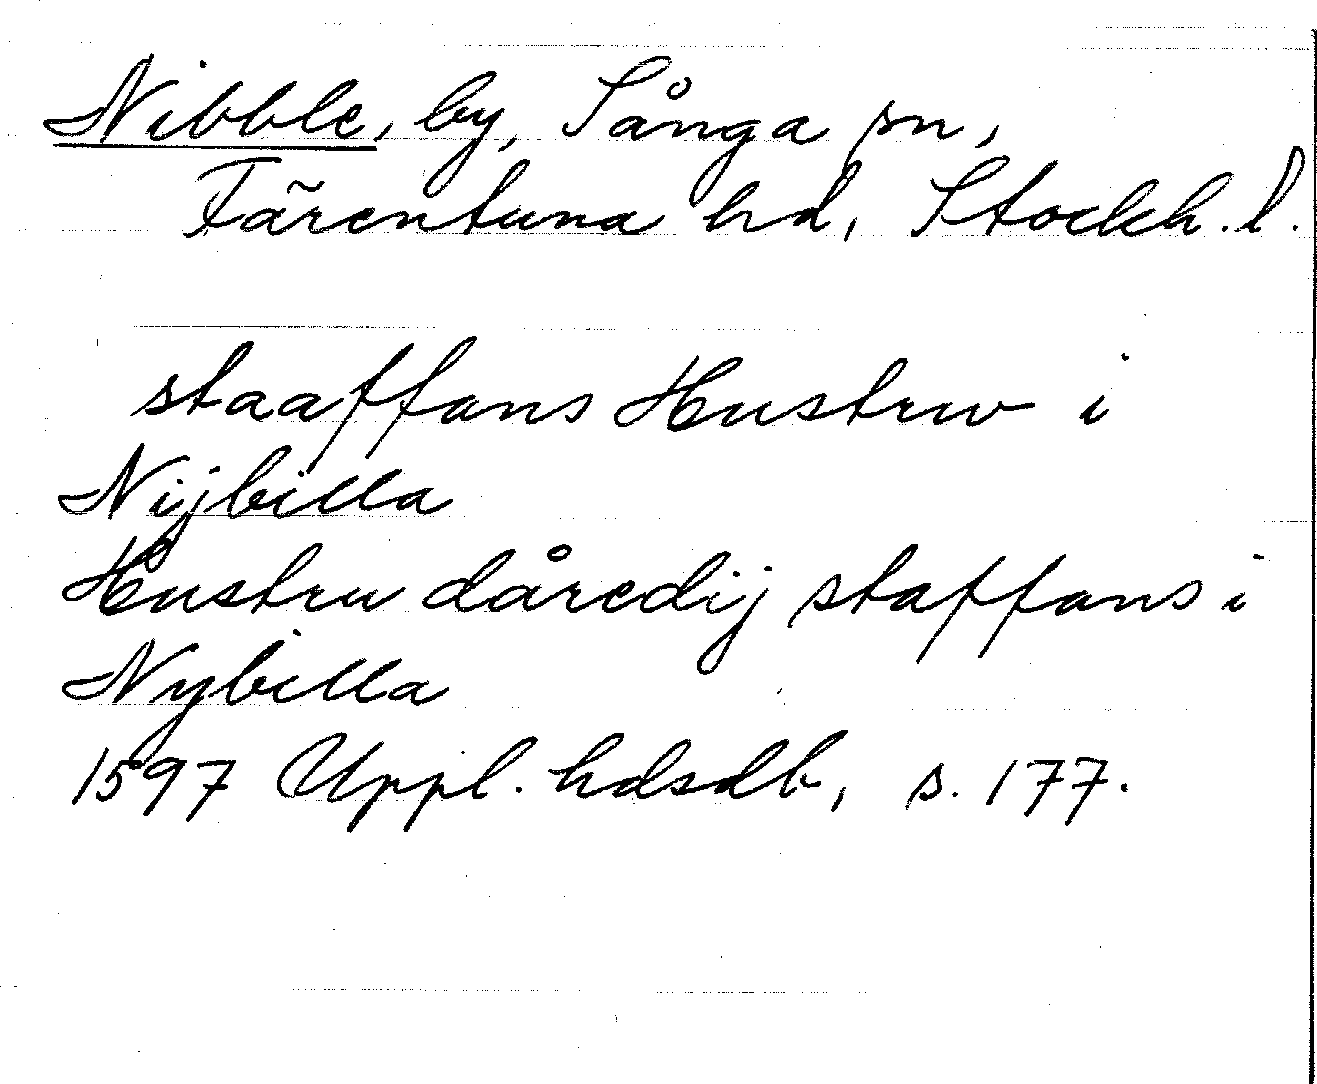 Nibble, by, Sånga sn,
Färentuna hd, Stockh. l.
staaffans Hustrw i
Nijbilla
Hustru dåredij staffans i
Nybilla
1597 Uppl. hdsdb, s. 177.